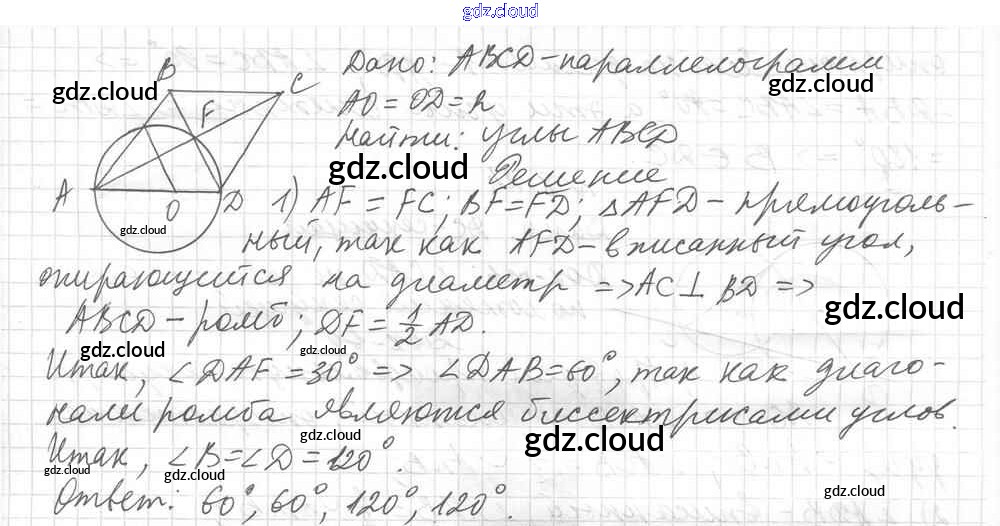 gdz.cloud
Дано: ABCD - параллелограмм
B
C
gdz.cloud
gdz.cloud
AO = OD = R
F
Найти: углы ABCD
gdz.cloud
Решение
A
O
D
1) AF = FC; BF = FD; △AFD - прямоуголь-
gdz.cloud
ный, так как AFD - вписанный угол,
опирающийся на диаметр => AC ⊥ BD =>
gdz.cloud
ABCD - ромб; DF = 1/2 AD.
gdz.cloud
gdz.cloud
Итак, ∠DAF = 30° => ∠DAB = 60°, так как диаго-
нали ромба являются биссектрисами углов.
gdz.cloud
gdz.cloud
Итак, ∠B = ∠D = 120°.
gdz.cloud
gdz.cloud
Ответ: 60°, 60°, 120°, 120°.
gdz.cloud